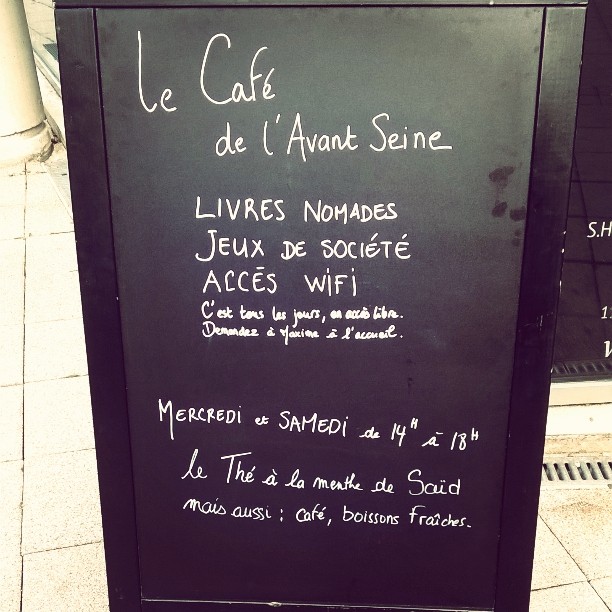 Le Café
de l'Avant Seine
LIVRES NOMADES
JEUX DE SOCIÉTÉ
ACCÉS WIFI
C'est tous les jours, en accès libre.
Demandez à Maxime à l'accueil.
MERCREDI et SAMEDI de 14H à 18H
le Thé à la menthe de Saïd
mais aussi : café, boissons fraîches.
S.H